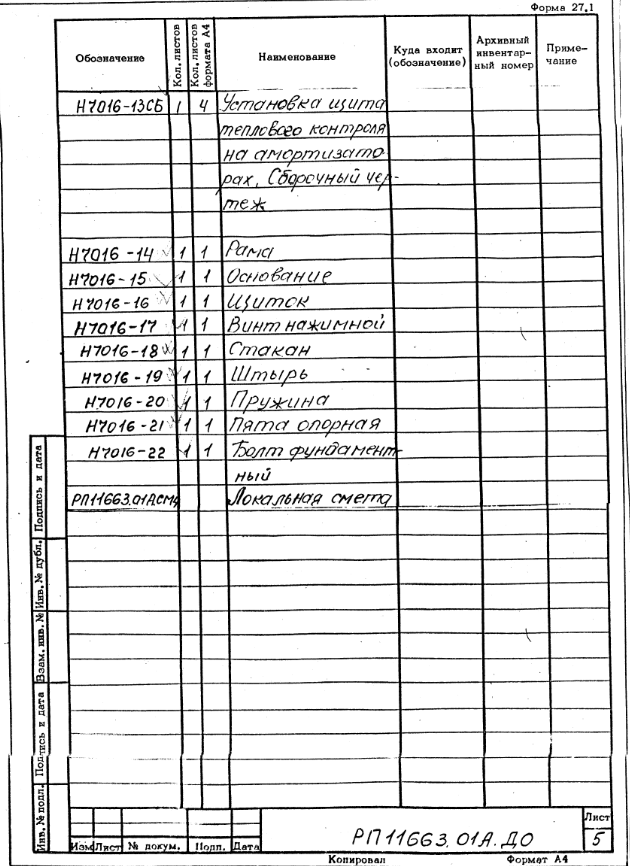 Форма 27.1
Обозначение Кол. листов Кол. листов формата А4 Наименование Куда входит (обозначение) Архивный инвентар-ный номер Приме-чание
Н7016-13СБ 1 4 Установка щита
теплового контроля
на амортизато-
рах. Сборочный чер-
теж
Н7016-14 1 1 Рама
Н7016-15 1 1 Основание
Н7016-16 1 1 Щиток
Н7016-17 1 1 Винт нажимной
Н7016-18 1 1 Стакан
Н7016-19 1 1 Штырь
Н7016-20 1 1 Пружина
Н7016-21 1 1 Пята опорная
Н7016-22 1 1 Болт фундамент-
ный
РП11663.01А.СМ4 Локальная смета
Инв. № подл. Подпись и дата Взам. инв. № Инв. № дубл. Подпись и дата
Изм Лист № докум. Подп. Дата
РП11663.01А.ДО
Лист
5
Копировал Формат А4